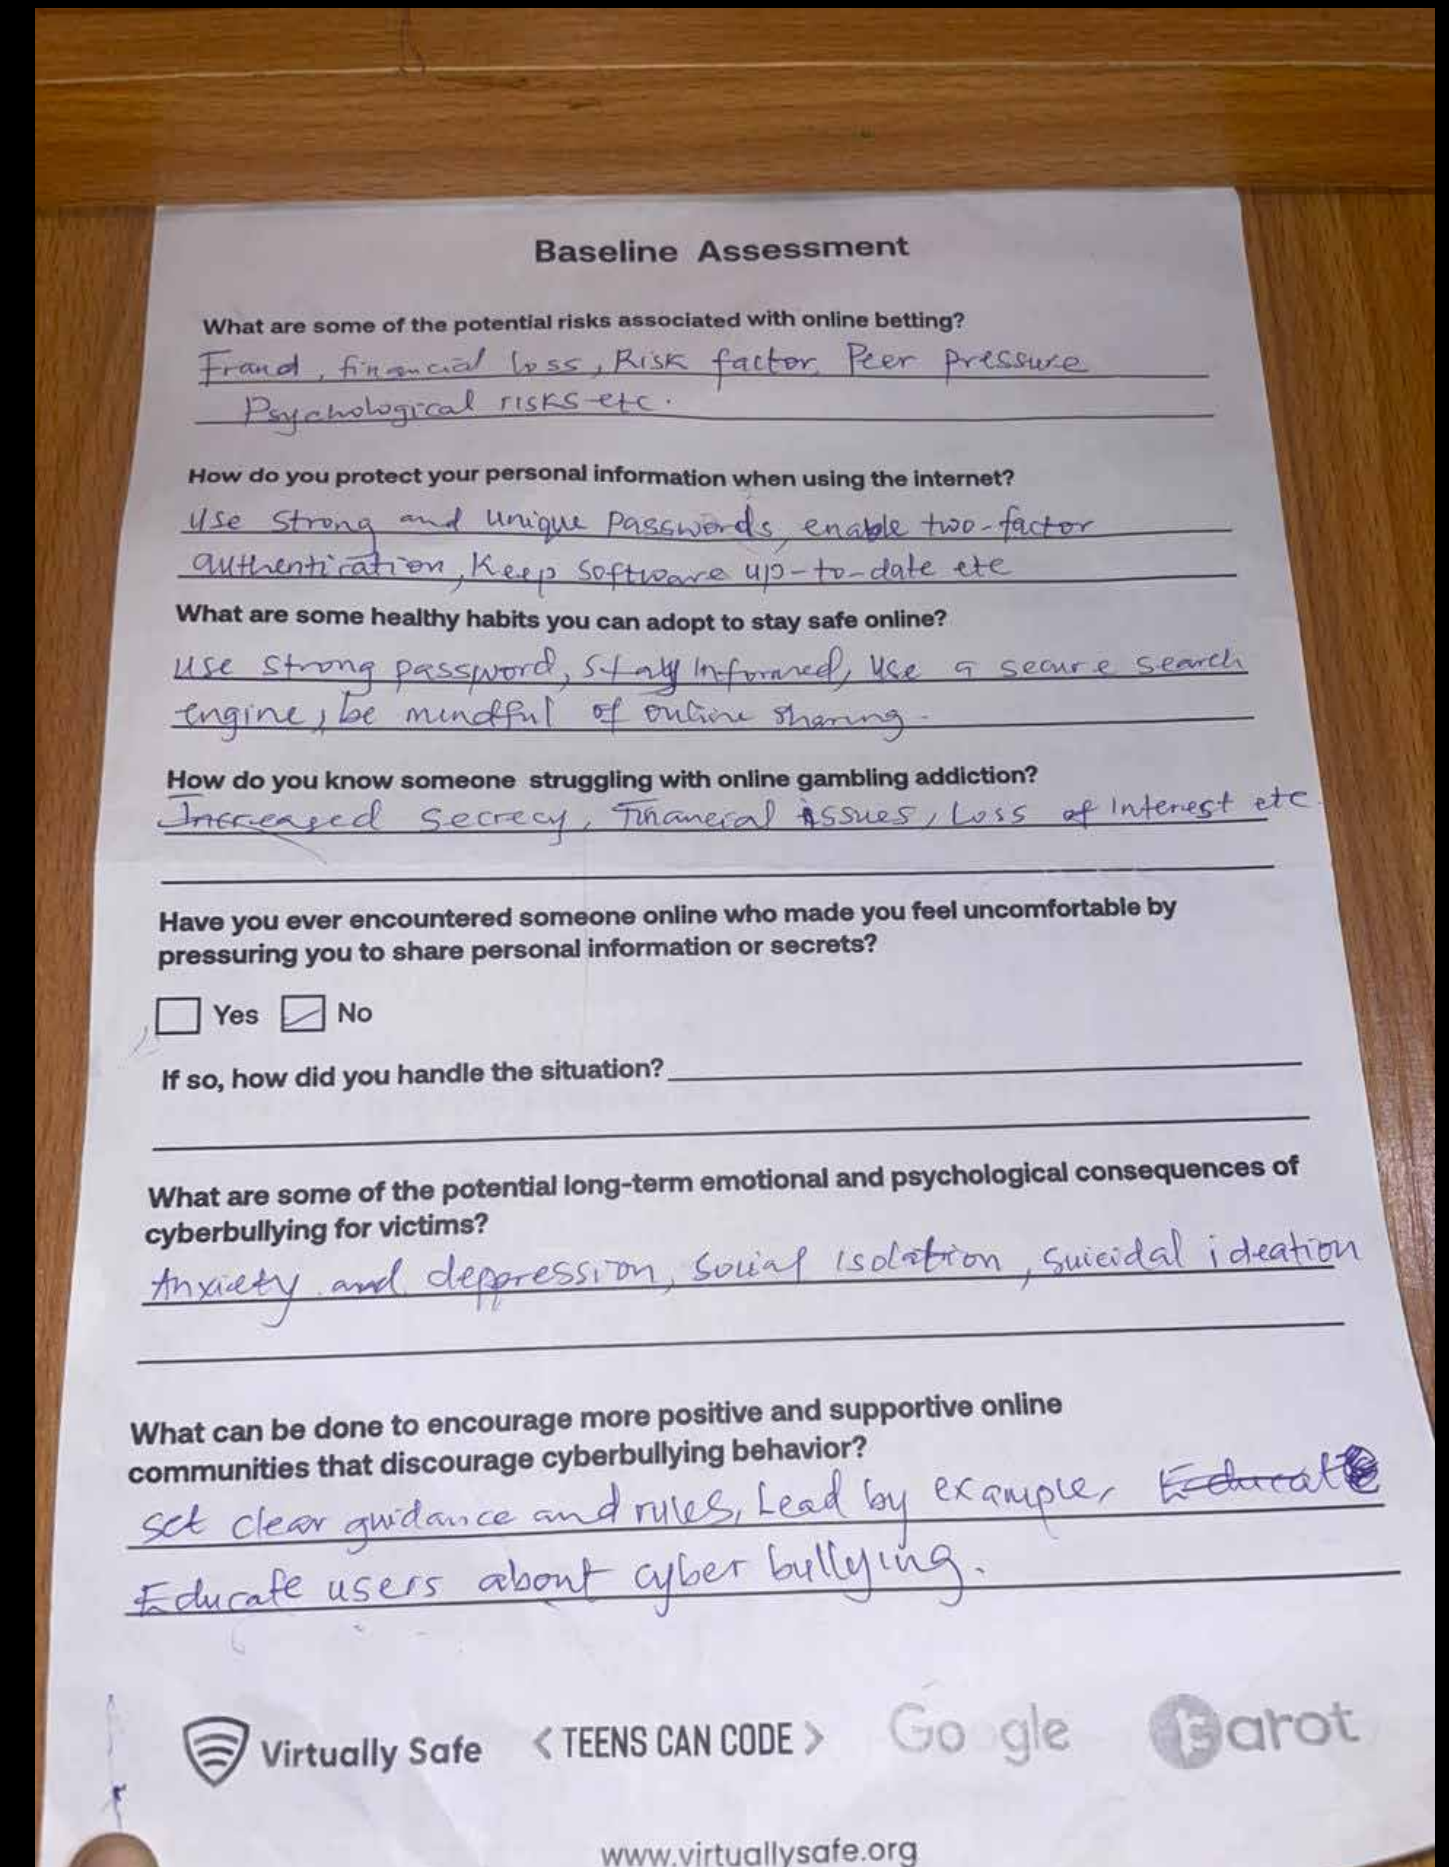 Baseline Assessment
What are some of the potential risks associated with online betting?
Fraud, financial loss, Risk factor, Peer pressure
Psychological risks etc.
How do you protect your personal information when using the internet?
Use strong and unique passwords, enable two-factor
authentication, Keep software up-to-date etc
What are some healthy habits you can adopt to stay safe online?
Use strong password, stay informed, Use a secure search
engine, be mindful of online sharing.
How do you know someone struggling with online gambling addiction?
Increased secrecy, Financial issues, Loss of interest etc.
Have you ever encountered someone online who made you feel uncomfortable by
pressuring you to share personal information or secrets?
Yes No
If so, how did you handle the situation?
What are some of the potential long-term emotional and psychological consequences of
cyberbullying for victims?
Anxiety and deppression, social isolation, suicidal ideation
What can be done to encourage more positive and supportive online
communities that discourage cyberbullying behavior?
set clear guidance and rules, Lead by example, Educate
Educate users about cyber bullying.
Virtually Safe <TEENS CAN CODE> Google Garot
www.virtuallysafe.org